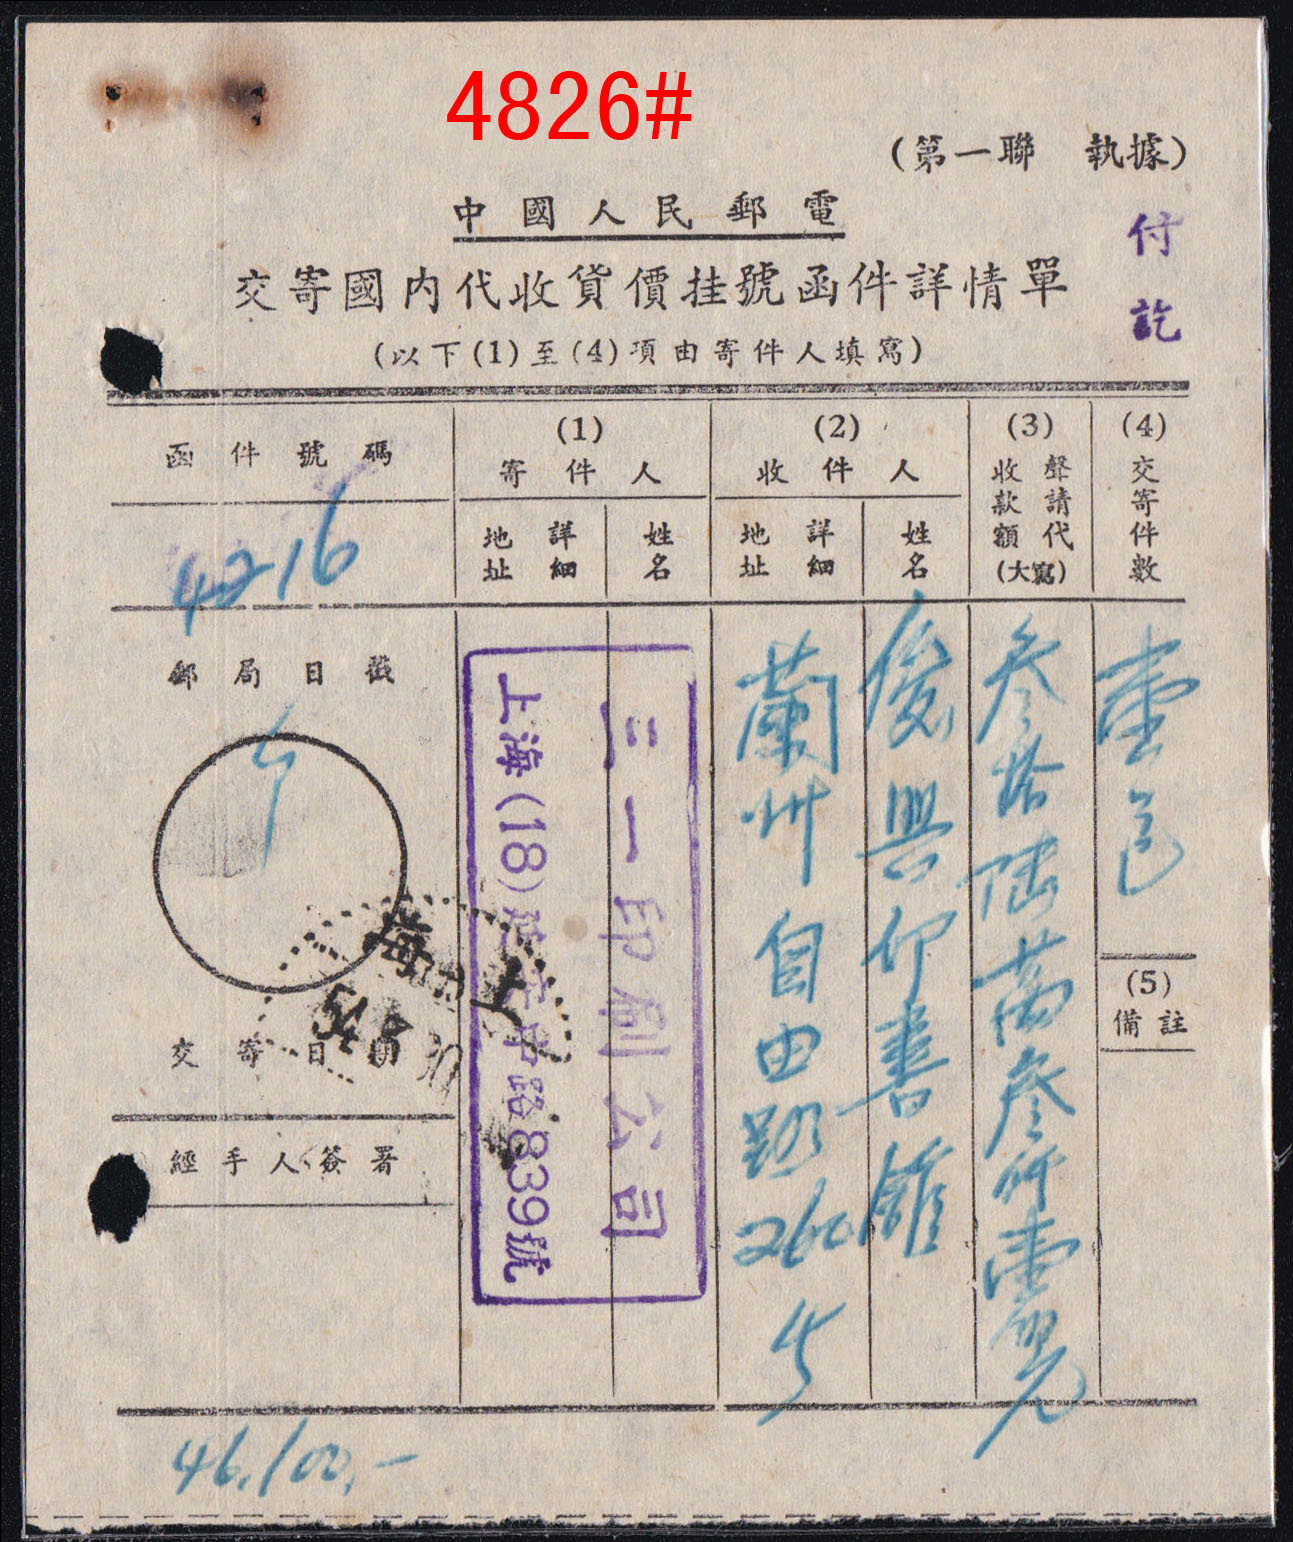 4826#
(第一聯 執據)
中國人民郵電
付訖
交寄國內代收貨價挂號函件詳情單
(以下(1)至(4)項由寄件人填寫)
函件號碼
4216
郵局日戳
交寄日期
經手人簽署
(1)
寄件人
詳細地址
姓名
上海(18)延安中路839號
三一印刷公司
(2)
收件人
詳細地址
姓名
蘭州自由路260号
俊興印書館
(3)
聲請代收款額(大寫)
叁拾陆萬叁仟壹佰元
(4)
交寄件數
壹包
(5)
備註
上海
54.6
46,100.-